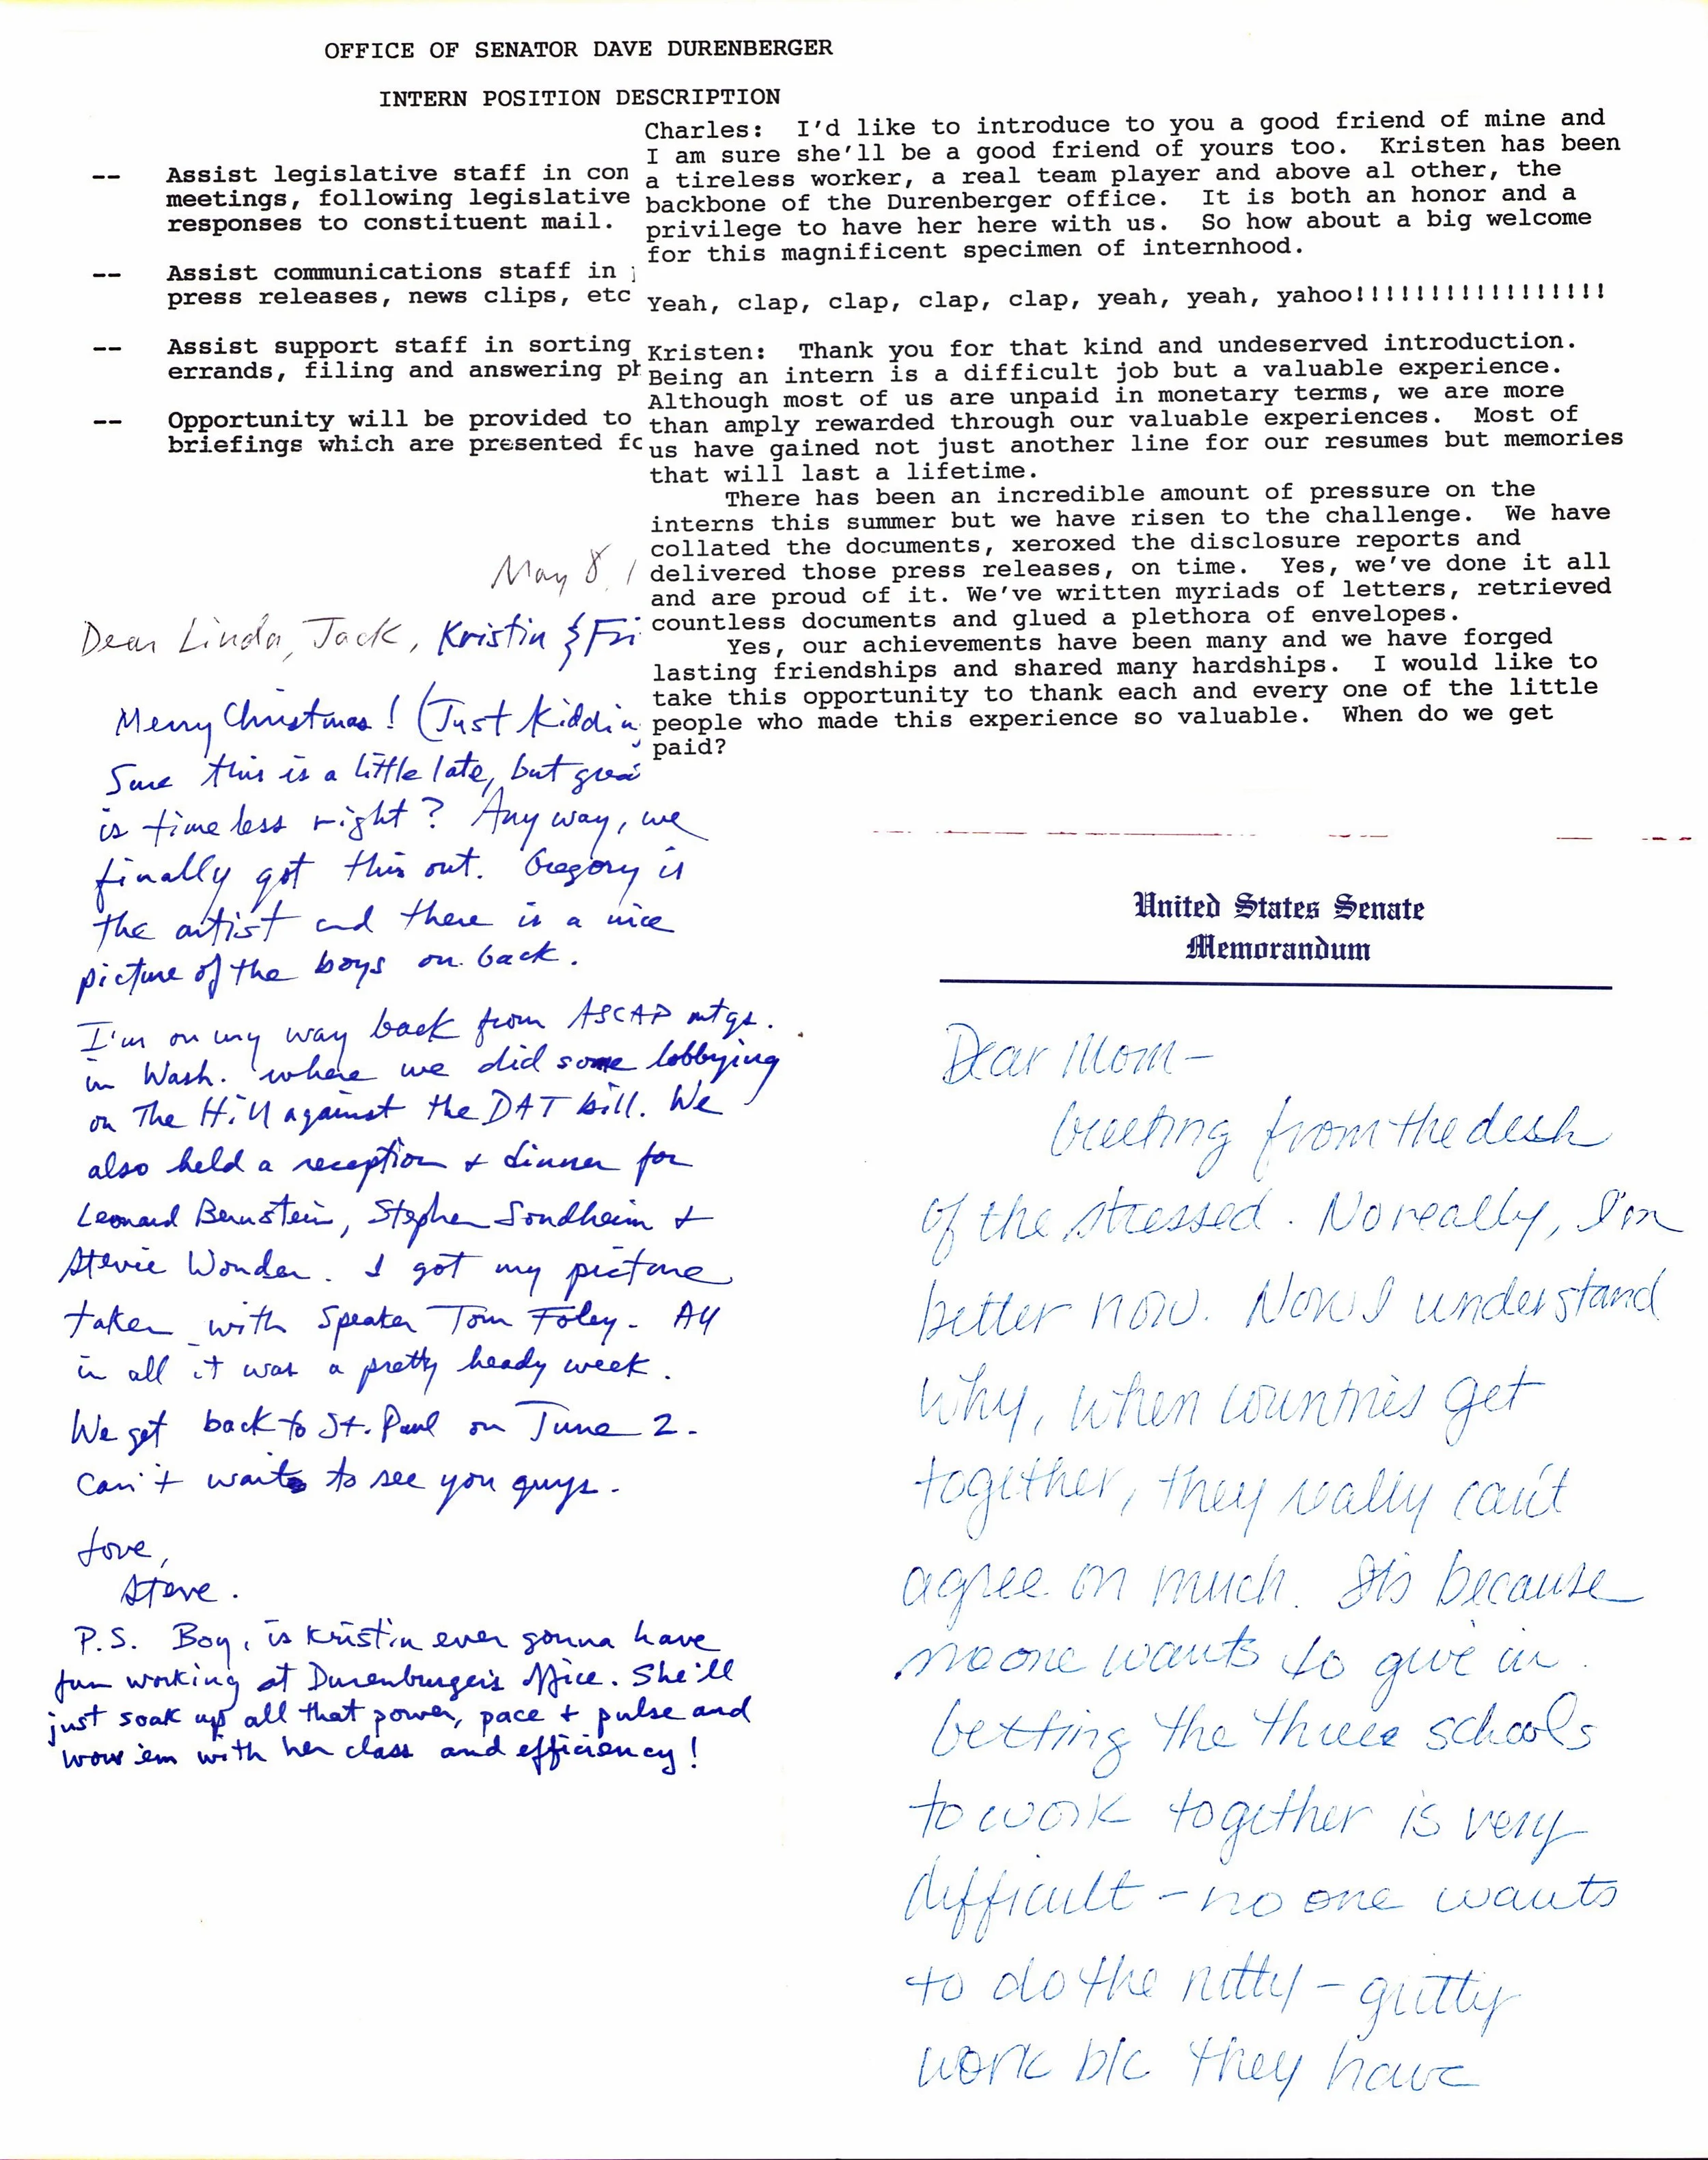 OFFICE OF SENATOR DAVE DURENBERGER
INTERN POSITION DESCRIPTION
-- Assist legislative staff in con
meetings, following legislative
responses to constituent mail.
-- Assist communications staff in
press releases, news clips, etc
-- Assist support staff in sorting
errands, filing and answering ph
-- Opportunity will be provided to
briefings which are presented fo
Charles: I'd like to introduce to you a good friend of mine and
I am sure she'll be a good friend of yours too. Kristen has been
a tireless worker, a real team player and above al other, the
backbone of the Durenberger office. It is both an honor and a
privilege to have her here with us. So how about a big welcome
for this magnificent specimen of internhood.
Yeah, clap, clap, clap, clap, yeah, yeah, yahoo!!!!!!!!!!!!!!!!!!
Kristen: Thank you for that kind and undeserved introduction.
Being an intern is a difficult job but a valuable experience.
Although most of us are unpaid in monetary terms, we are more
than amply rewarded through our valuable experiences. Most of
us have gained not just another line for our resumes but memories
that will last a lifetime.
There has been an incredible amount of pressure on the
interns this summer but we have risen to the challenge. We have
collated the documents, xeroxed the disclosure reports and
delivered those press releases, on time. Yes, we've done it all
and are proud of it. We've written myriads of letters, retrieved
countless documents and glued a plethora of envelopes.
Yes, our achievements have been many and we have forged
lasting friendships and shared many hardships. I would like to
take this opportunity to thank each and every one of the little
people who made this experience so valuable. When do we get
paid?
May 8, 1
Dear Linda, Jack, Kristin & Fri
Merry Christmas! (Just Kiddin
Sure this is a little late, but gree
is timeless right? Anyway, we
finally got this out. Gregory is
the artist and there is a nice
picture of the boys on back.
I'm on my way back from ASCAP mtgs.
in Wash. where we did some lobbying
on The Hill against the DAT bill. We
also held a reception + dinner for
Leonard Bernstein, Stephen Sondheim +
Stevie Wonder. I got my picture
taken with Speaker Tom Foley. All
in all it was a pretty heady week.
We get back to St. Paul on June 2.
Can't wait to see you guys.
Love,
Steve.
P.S. Boy, is Kristin ever gonna have
fun working at Durenburger's office. She'll
just soak up all that power, pace + pulse and
wow 'em with her class and efficiency!
United States Senate
Memorandum
Dear Mom-
Greeting from the desk
of the stressed. No really, I'm
better now. Now I understand
why, when countries get
together, they really can't
agree on much. It's because
no one wants to give in.
Getting the three schools
to work together is very
difficult - no one wants
to do the nitty-gritty
work b/c they have